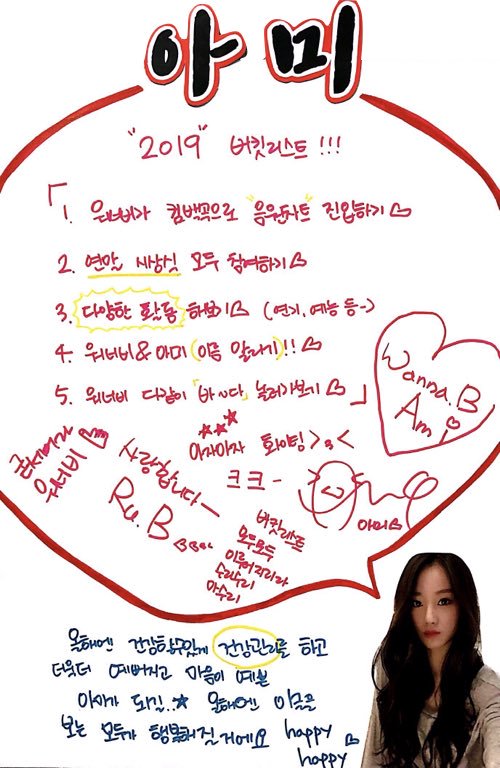 아미
"2019" 버킷리스트 !!!
「1. 워너비가 컴백곡으로 "음원차트" 진입하기♡
2. 연말 시상식 모두 참여하기♡
3. 다양한 활동 해보기♡ (연기, 예능 등~)
4. 워너비&아미 (이름 알리기)!! ♡
5. 워너비 다같이 "바~다" 놀러가보기♡ 」
Wanna.B
Am♡
★★★
아자아자 화이팅>3<
워너비♡
사랑합니다ㅡ
Ru.B
크크-
아미♡
버킷리스트
모두모두
이루어져라
수리수리
마수리
올해엔 건강할수있게 건강관리를 하고
더욱더 예뻐지고 마음이 예쁜
아미가 되길..★ 올해엔 이글을
보는 모두가 행복해질거예요 happy♡
happy